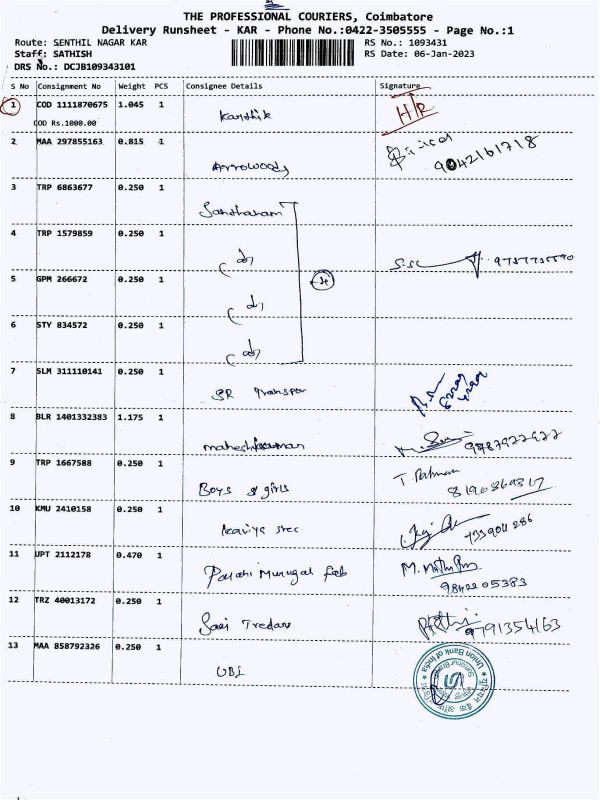 THE PROFESSIONAL COURIERS, Coimbatore
Delivery Runsheet - KAR - Phone No.:0422-3505555 - Page No.:1
Route: SENTHIL NAGAR KAR RS No.: 1093431
Staff: SATHISH RS Date: 06-Jan-2023
DRS No.: DCJB109343101
S No Consignment No Weight PCS Consignee Details Signature
1 COD 1111870675 1.045 1 Karthik H/R
COD Rs.1000.00
2 MAA 297855163 0.815 1 Arrowoods 9042161718
3 TRP 6863677 0.250 1 Santharam
4 TRP 1579859 0.250 1
5 GPM 266672 0.250 1
6 STY 834572 0.250 1
7 SLM 311110141 0.250 1 SR Transpor
8 BLR 1401332383 1.175 1 9787922922
9 TRP 1667588 0.250 1 Boys & girls
10 KMU 2410158 0.250 1 Kaviya sree
11 UPT 2112178 0.470 1 Palani Murugal fab 9842205383
12 TRZ 40013172 0.250 1 9791354163
13 MAA 858792326 0.250 1 UBI
Union Bank of India